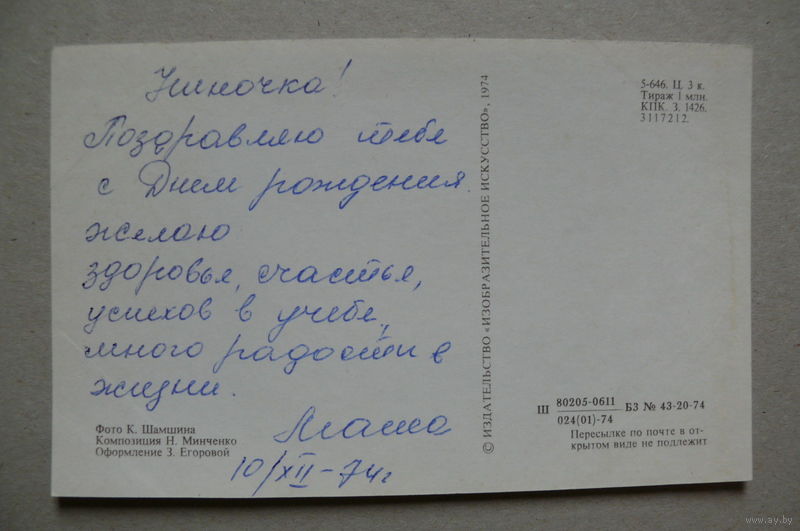 Ниночка!
Поздравляю тебя
с Днем рождения.
желаю
здоровья, счастья,
успехов в учебе,
много радости в
жизни.
Маша
10/XII-74г
Фото К. Шамшина
Композиция Н. Минченко
Оформление З. Егоровой
© ИЗДАТЕЛЬСТВО «ИЗОБРАЗИТЕЛЬНОЕ ИСКУССТВО», 1974
5-646. Ц. 3 к.
Тираж 1 млн.
КПК. З. 1426.
3117212.
Ш 80205-0611 БЗ № 43-20-74
024(01)-74
Пересылке по почте в от-
крытом виде не подлежит
www.ay.by